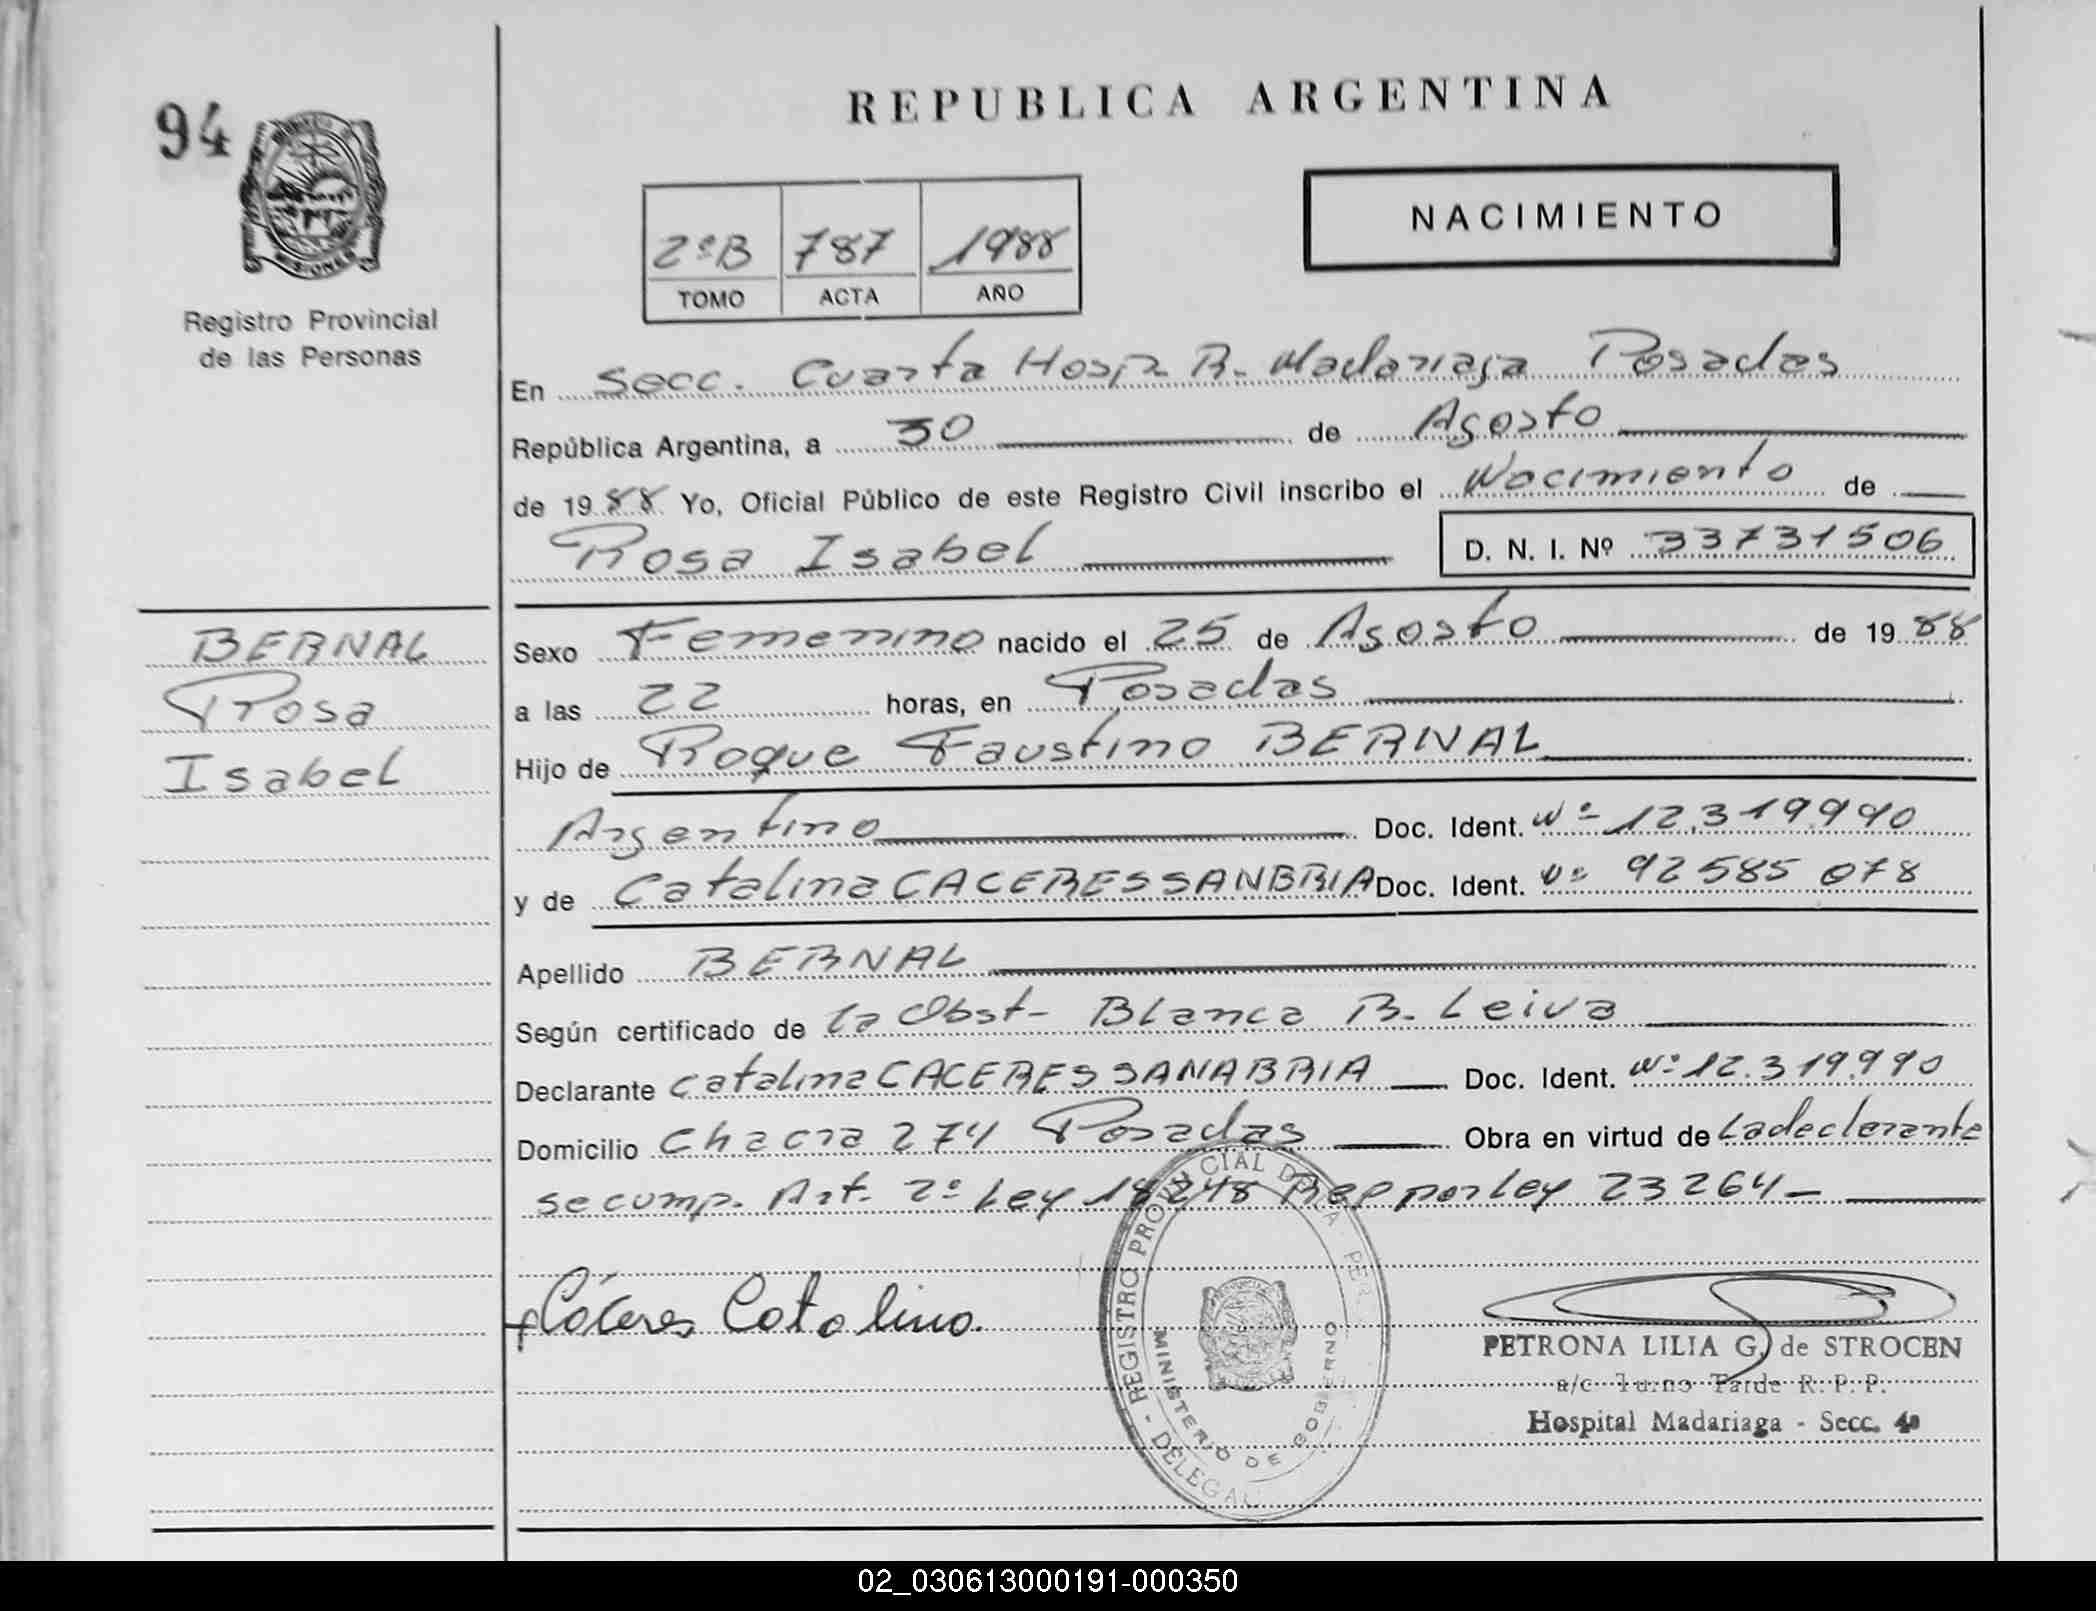 94
REPUBLICA ARGENTINA
NACIMIENTO
2ºB 787 1988
TOMO ACTA AÑO
MISIONES
Registro Provincial
de las Personas
En Secc. Cuarta Hosp. R. Madariaga Posadas
República Argentina, a 30 de Agosto
de 1988 Yo, Oficial Público de este Registro Civil inscribo el Nacimiento de
Rosa Isabel D. N. I. Nº 33731506
BERNAL
Rosa
Isabel
Sexo Femenino nacido el 25 de Agosto de 1988
a las 22 horas, en Posadas
Hijo de Roque Faustino BERNAL
Argentino Doc. Ident. Nº 12.319.990
y de Catalina CACERES SANBRIA Doc. Ident. Nº 92585078
Apellido BERNAL
Según certificado de la Obst- Blanca B. Leiva
Declarante Catalina CACERES SANABRIA Doc. Ident. Nº 12.319.990
Domicilio Chacra 274 Posadas Obra en virtud de La declarante
se cump. Art. 2º Ley 18248 Rep por Ley 23264-
Cáceres Catalina.
REGISTRO PROVINCIAL DE LA PER
MINISTERIO DE GOBIERNO
DELEGA
PETRONA LILIA G. de STROCEN
a/c Turno Tarde R. P. P.
Hospital Madariaga - Secc. 4a
02_030613000191-000350